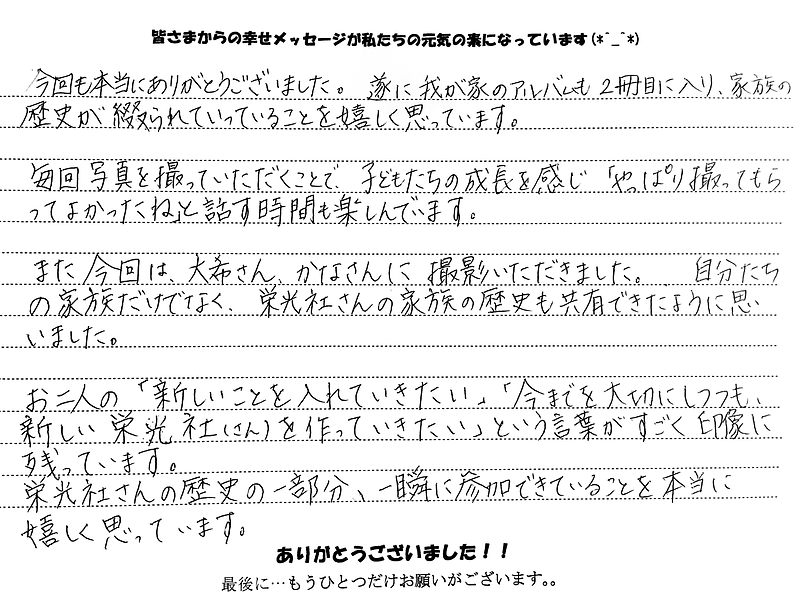 皆さまからの幸せメッセージが私たちの元気の素になっています(*^_^*)
今回も本当にありがとうございました。遂に我が家のアルバムも2冊目に入り、家族の
歴史が綴られていっていることを嬉しく思っています。
毎回写真を撮っていただくことで、子どもたちの成長を感じ「やっぱり撮ってもら
ってよかったね」と話す時間も楽しんでいます。
また今回は、大希さん、かなさんに撮影いただきました。自分たち
の家族だけでなく、栄光社さんの家族の歴史も共有できたように思
いました。
お二人の「新しいことを入れていきたい」「今までを大切にしつつも、
新しい栄光社(さん)を作っていきたい」という言葉がすごく印象に
残っています。
栄光社さんの歴史の一部分、一瞬に参加できていることを本当に
嬉しく思っています。
ありがとうございました!!
最後に…もうひとつだけお願いがございます。。